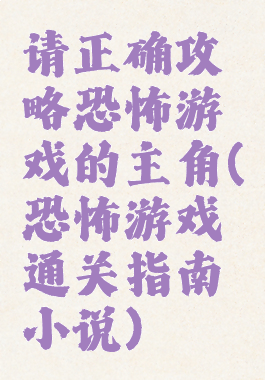 请正确攻
略恐怖游
戏的主角(
恐怖游戏
通关指南
小说)